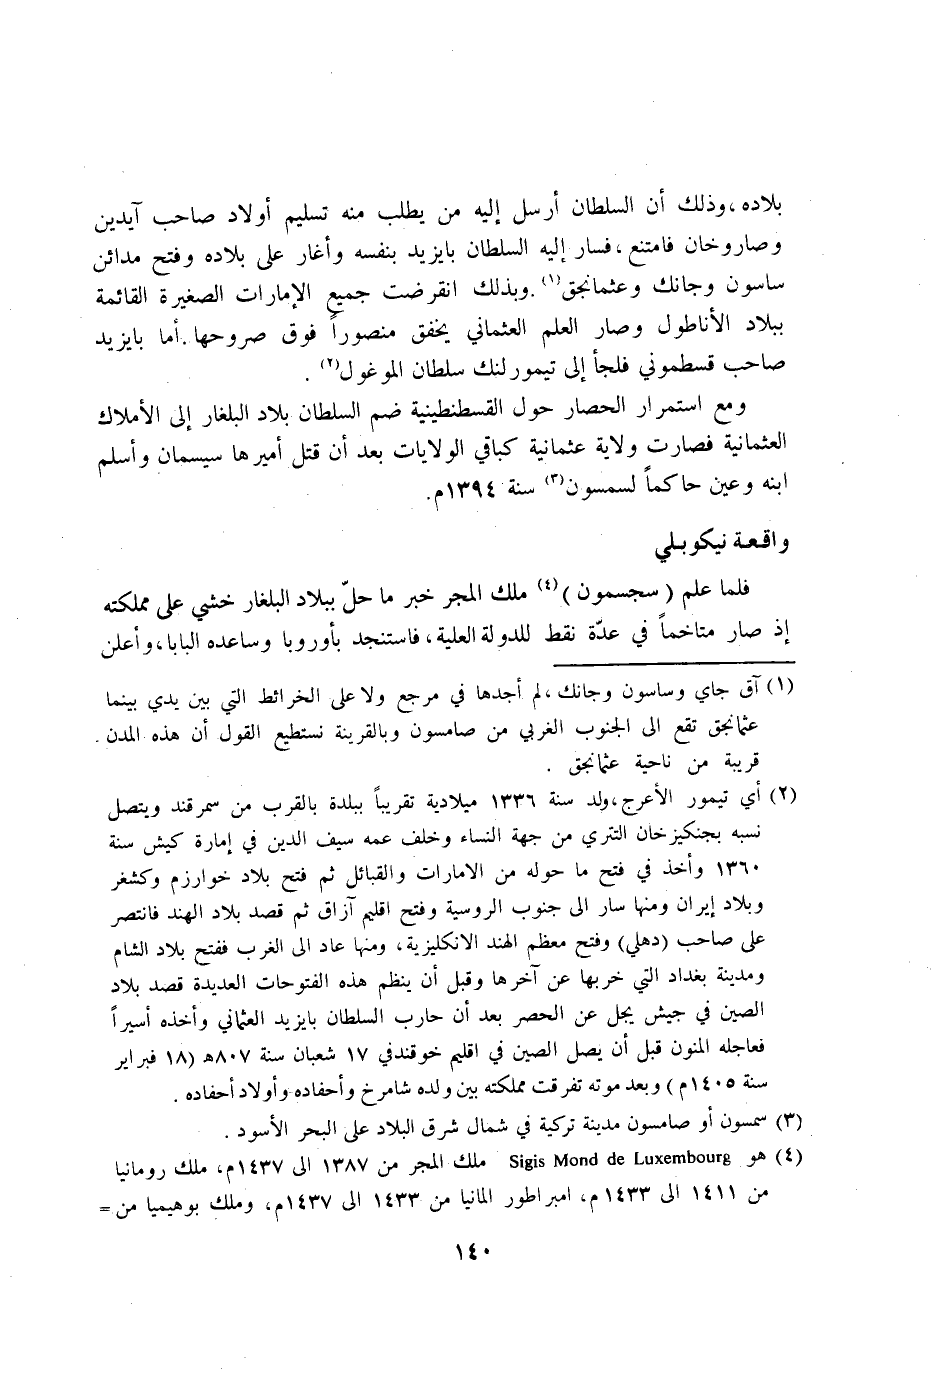 بلاده ،وذلك أن السلطان أرسل إليه من يطلب منه تسليم أولاد صاحب آيدين
وصاروخان فامتنع ،فسار إليه السلطان بايزيد بنفسه وأغار على بلاده وفتح مدائن
ساسون وجانك وعثمانجق(١) .وبذلك انقرضت جميع الإمارات الصغيرة القائمة
ببلاد الأناطول وصار العلم العثماني يخفق منصوراً فوق صروحها .أما بايزيد
صاحب قسطموني فلجأ إلى تيمورلنك سلطان الموغول(٢) .
ومع استمرار الحصار حول القسطنطينية ضم السلطان بلاد البلغار إلى الأملاك
العثمانية فصارت ولاية عثمانية كباقي الولايات بعد أن قتل أميرها سيسمان وأسلم
ابنه وعين حاكماً لسمسون(٣) سنة ١٣٩٤م.
واقعة نيكوبلي
فلما علم ( سجسمون )(٤) ملك المجر خبر ما حلّ ببلاد البلغار خشي على مملكته
إذ صار متاخماً في عدّة نقط للدولة العلية ، فاستنجد بأوروبا وساعده البابا ، وأعلن
(١) آق جاي وساسون وجانك ،لم أجدها في مرجع ولا على الخرائط التي بين يدي بينما
عثمانجق تقع الى الجنوب الغربي من صامسون وبالقرينة نستطيع القول أن هذه المدن .
قريبة من ناحية عثمانجق .
(٢) أي تيمور الأعرج ،ولد سنة ١٣٣٦ ميلادية تقريباً ببلدة بالقرب من سمرقند ويتصل
نسبه بجنكيزخان التتري من جهة النساء وخلف عمه سيف الدين في إمارة كيش سنة
١٣٦٠ وأخذ في فتح ما حوله من الامارات والقبائل ثم فتح بلاد خوارزم وكشغر
وبلاد إيران ومنها سار الى جنوب الروسية وفتح اقليم آزاق ثم قصد بلاد الهند فانتصر
على صاحب (دهلي) وفتح معظم الهند الانكليزية ، ومنها عاد الى الغرب ففتح بلاد الشام
ومدينة بغداد التي خربها عن آخرها وقبل أن ينظم هذه الفتوحات العديدة قصد بلاد
الصين في جيش يجل عن الحصر بعد أن حارب السلطان بايزيد العثماني وأخذه أسيراً
فعاجله المنون قبل أن يصل الصين في اقليم خوقندفي ١٧ شعبان سنة ٨٠٧هـ (١٨ فبراير
سنة ١٤٠٥م ) وبعد موته تفرقت مملكته بين ولده شامرخ وأحفاده وأولاد أحفاده .
(٣) سمسون أو صامسون مدينة تركية في شمال شرق البلاد على البحر الأسود .
(٤) هو Sigis Mond de Luxembourg ملك المجر من ١٣٨٧ الى ١٤٣٧م ، ملك رومانيا
من ١٤١١ الى ١٤٣٣ م ، امبراطور المانيا من ١٤٣٣ الى ١٤٣٧م ، وملك بوهيميا من =
١٤٠